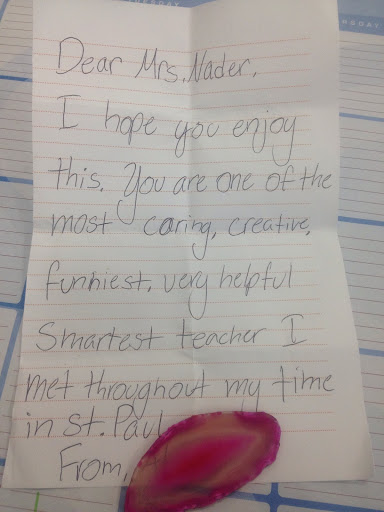 TUESDAY
RSDAY
Dear Mrs. Nader,
I hope you enjoy
this. You are one of the
most caring, creative,
funniest, very helpful
Smartest teacher I
met throughout my time
in St. Paul
From,